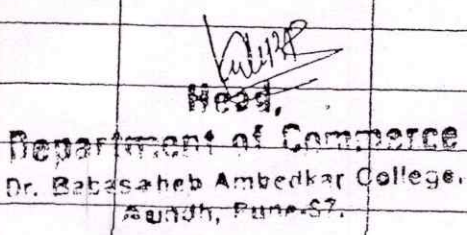 Head,
Department of Commerce
Dr. Babasaheb Ambedkar College.
Aundh, Pune-67.